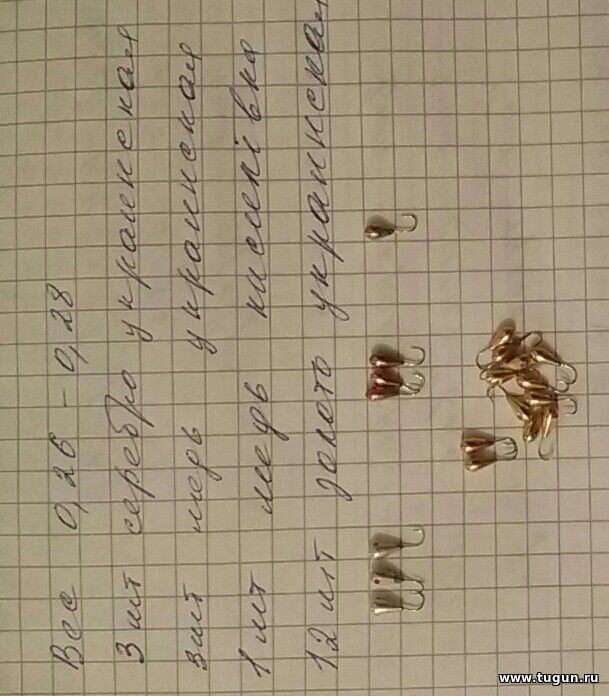 Вес 0,26 - 0,28
3 шт серебро украинская
3 шт медь украинская
1 шт медь киселівка
12 шт золото украинская
www.tugun.ru